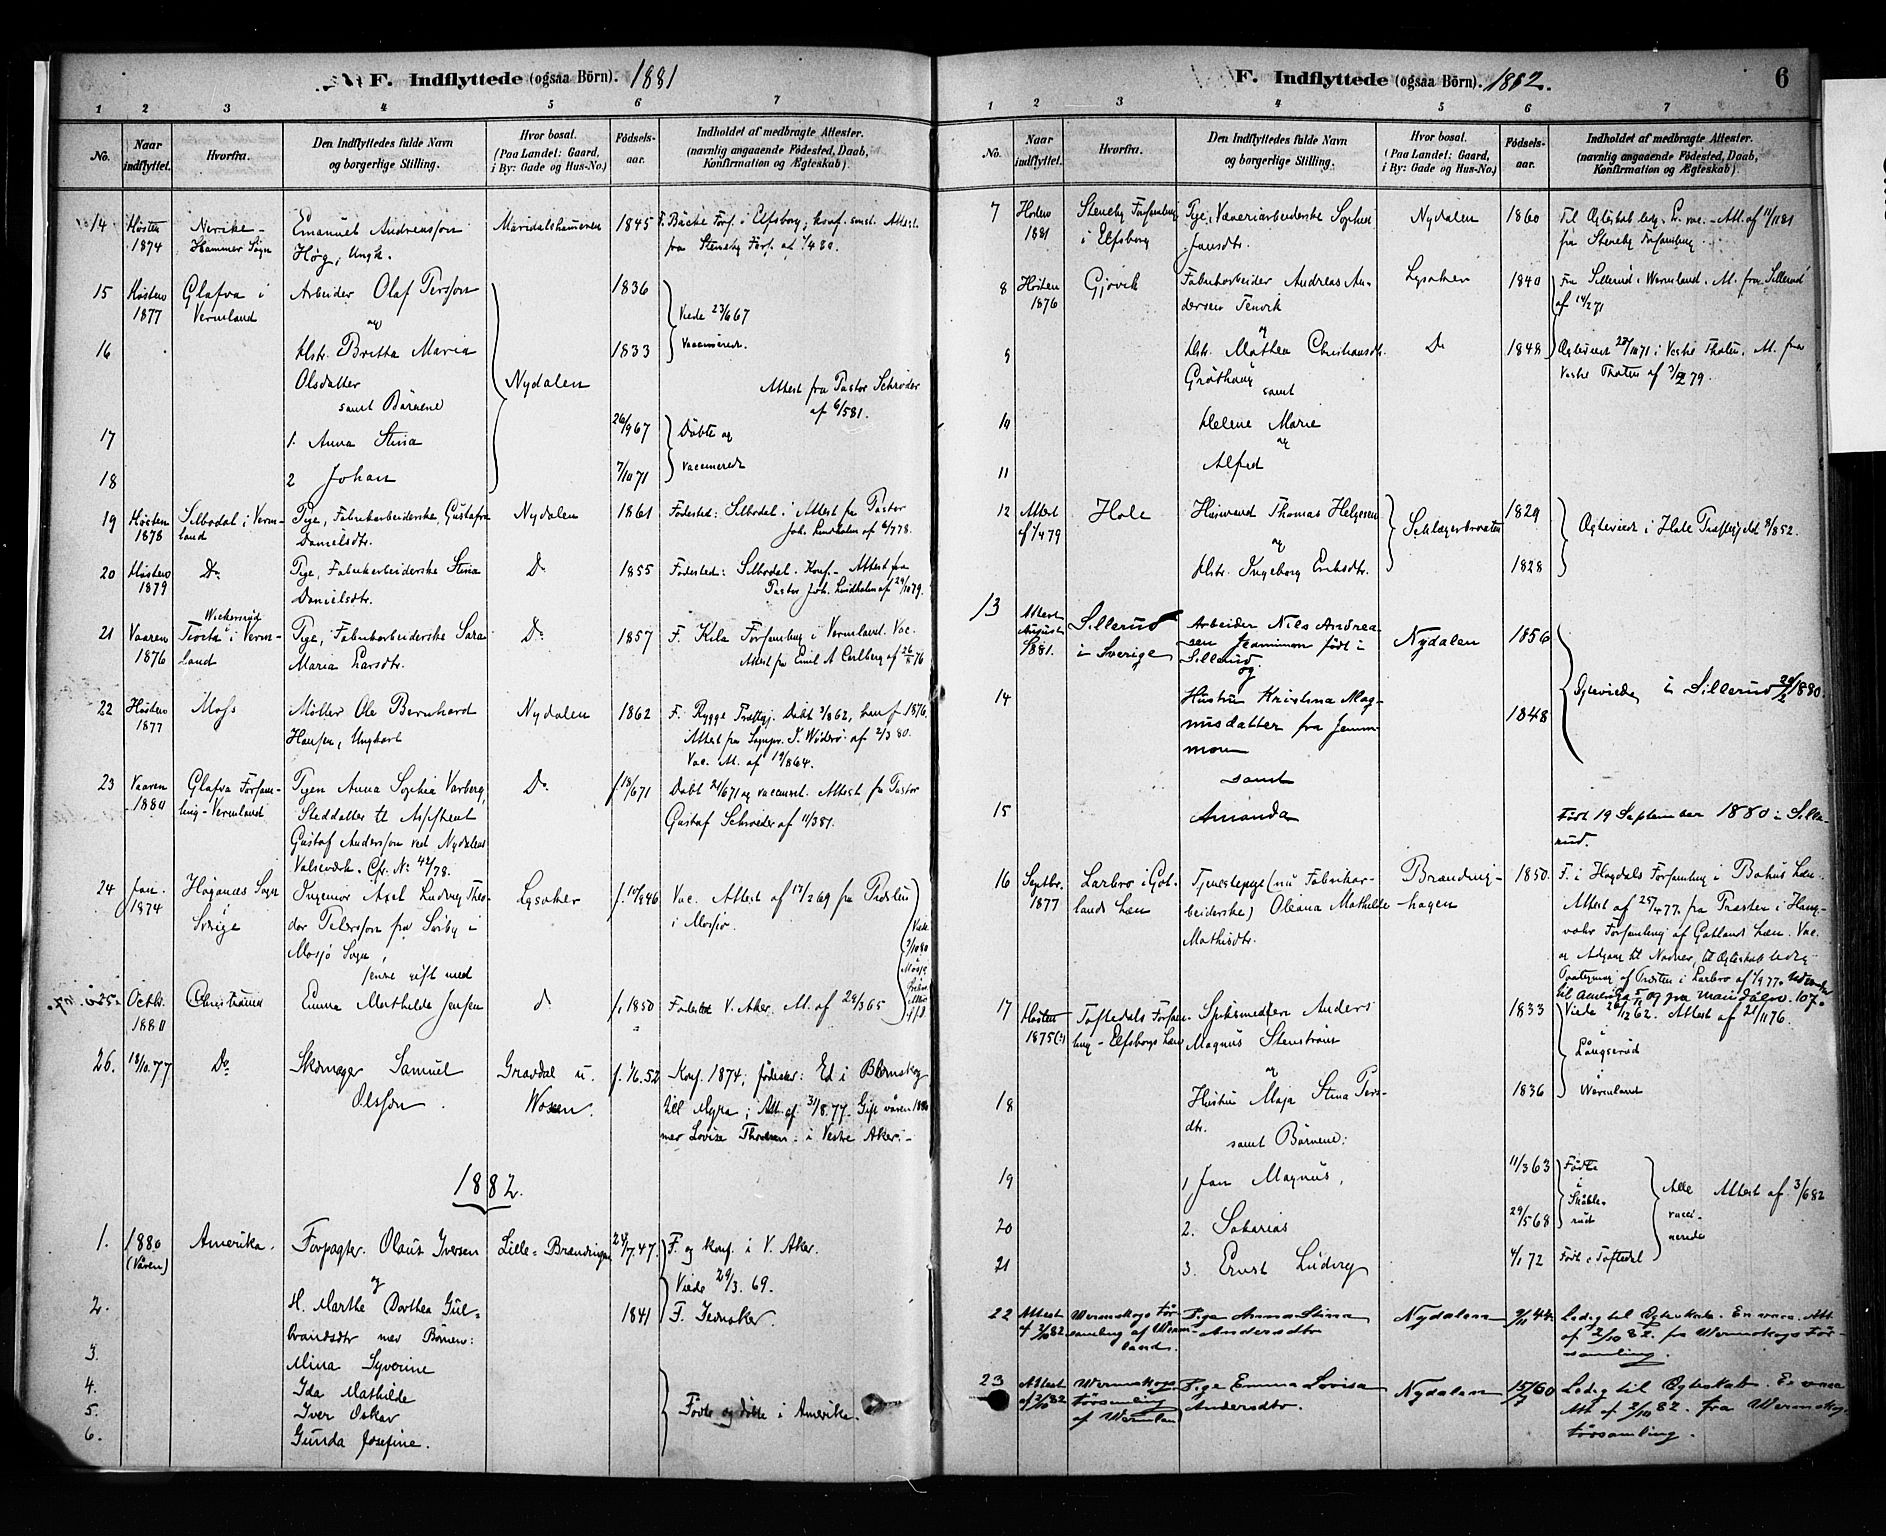 F. Indflyttede (ogsaa Börn). 1881
1 2 3 4 5 6 7
No.
Naar indflyttet.
Hvorfra.
Den Indflyttedes fulde Navn og borgerlige Stilling.
Hvor bosat. (Paa Landet: Gaard, i By: Gade og Hus-No.)
Fødsels-aar.
Indholdet af medbragte Attester. (navnlig angaaende Fødested, Daab, Konfirmation og Ægteskab).
14 Høsten Nerike- Emanuel Andreasson Maridalshammeren 1845 F. Bäcke Fors. i Elfsborg; konf. Attest
1874 Hammer Sogn Høg, Ungk. fra Steneby Fors. af 1/4 80.
15 Høsten Glafva i Arbeider Olaf Persson 1836 Viede 23/6 67
1877 Vermland og vaccinerede.
16 Hstr. Britta Maria 1833
Olsdatter Nydalen Attest fra Pastor Schrøder
samt Børnene af 6/5 81.
17 1. Anna Stina 26/9 67 Døbte og
18 2 Johan 7/10 71 vaccinerede
19 Høsten Silbodal i Verm- Pige, Fabrikarbeiderske Gustafva Nydalen 1861 Fødested: Silbodal. Attest fra Pastor
1878 land Danielsdtr. Joh. Lindholm af 6/7 78.
20 Høsten Do Pige, Fabrikarbeiderske Stina Do 1855 Fødested: Silbodal. Konf. Attest fra
1879 Danielsdtr. Pastor Joh. Lindholm af 29/10 79.
21 Vaaren i Verm- Pige, Fabrikarbeiderske Sara Do 1857 F. Kila Forsamling i Vermland. Vac.
1876 land Maria Larsdtr. Attest fra Emil A Carlberg af 26/5 76
22 Høsten Moss Møller Ole Bernhard Nydalen 1862 F. Rygge Præstegj. Døbt 3/8 62, konf. 1876.
1877 Hansen, Ungkarl Attest fra Sognepr. af 2/3 80.
Vac. At. af 19/8 64.
23 Vaaren Glafva Forsam- Pigen Anna Sophia Varberg, Do f. 18/6 71 Døbt 21/6 71 og vaccineret. Attest fra Pastor
1880 ling - Vermland Steddatter til Assistent Gustaf Schrøder af 11/3 81.
Gustaf Andersson ved Nydalens
Valseværk. Cfr. No 42/78.
24 Jan. Høganæs Sogn Ingeniør Axel Ludvig Theo- Lysaker f. 10/9 46 Vac. Attest af 17/2 69 fra Præsten
1874 Sverige dor Petersson fra Sørby i i Mosjø.
Mosjø Sogn,
senere gift med
25 Octbr. Christiania Emma Mathilde Jensen d f. 1850 Fødested V. Aker. At. af 24/3 65
1880
26. 18/10.77 Do Skomager Samuel Gravdal u. f. 1/6.52 Konf. 1874; fødested: Ed i Blomskog
Olsson. Woxen. till Myra; Att. af 31/8.77. Gift våren 1880
med Lovise Thoresen i Vestre Aker.
1882.
1. 1880 Amerika. Forpagter. Olaus Iversen Lille-Brændingen 24/7.47. F. og konf. i V. Aker.
(Våren) og Viede 29/3.69.
2. H. Marthe Dorthea Gul- 1841 F. Jevnaker.
brandsdtr med Børnene:
3. Mina Syverine
4. Ida Mathilde
5. Iver Oskar Fødte og døbte i Amerika.
6. Gunda Josefine.
F. Indflyttede (ogsaa Börn). 1882. 6
1 2 3 4 5 6 7
No.
Naar indflyttet.
Hvorfra.
Den Indflyttedes fulde Navn og borgerlige Stilling.
Hvor bosat. (Paa Landet: Gaard, i By: Gade og Hus-No.)
Fødsels-aar.
Indholdet af medbragte Attester. (navnlig angaaende Fødested, Daab, Konfirmation og Ægteskab).
7 Høsten Steneby Forsamling Pige, Væveriarbeiderske Sophie Nydalen 1860 Til Ægteskab ledig. At. af 11/11 81
1881 i Elfsborg Jansdtr. fra Steneby Forsamling.
8 Høsten Gjøvik Fabrikarbeider Andreas An- Lysaker 1840 Fra Sillerud i Wermland. At. fra Sillerud
1876 dersen Tenvik af 14/2 71
og
9 Hstr. Mathea Christiansdtr. Do 1848 Ægteviet 27/10 71 i Vestre Thoten. At. fra
Grøthaug Vestre Thoten af 3/2 79.
samt
10 Helene Marie
og
11 Alfred
12 Attest Hole Husmand Thomas Helgesen 1829 Ægteviede i Hole Præstegjeld 8/8 52.
af 1/4 79 og Schlagerbraaten
Hstr. Ingeborg Eriksdtr. 1828
13 Attest Sillerud Arbeider Nils Andrea- Nydalen 1856
August i Sverige sen Jemmimon født i
1881. Sillerud og Ægteviede i Sillerud 24/2 1880.
14 Hustru Kristina Mag- 1848
nusdatter fra Jemm-
mon
samt
15 Amanda Født 19 September 1880 i Sille-
rud.
16 Septbr. Larbro i Got- Tjenestepige (nu Fabrikar- Brænding- 1850 F. i Hogdals Forsamling i Bohus Læn.
1877 lands Læn beiderske) Oleana Mathilde -hagen Attest af 25/4 77. fra Præsten i
Mathisdtr. Forsamling af Gotlands Læn. Vac.
17 Høsten Toftedals Forsam- Spiksmeden Anders 1833 Viede 26/12 62. Attest af 21/11 76.
1875(?) ling - Elfsborgs Læn Magnus Stenstrøm Långserud
og i
18 Hustru Maja Stina Pers- 1836 Wermland
dtr.
samt Børnene:
19 1, Jan Magnus, 11/3 63 Fødte i Alle Attest af 3/6 82
20 2. Sakarias 29/5 68 vacci-
nerede
21 3. Ernst Ludvig 4/1 72 Født i Toftedal
22 Attest Wermskogs För- Pige Anna Stina Nydalen 9/11 44 Ledig til Ægteskab. Er vacc. Att.
af 2/10 82 samling af Werm- Andersdtr af 2/10 82. fra Wermskogs För-
lands. samling.
23 Attest Wermskogs Pige Emma Lovisa Nydalen 15/7 60 Ledig til Ægteskab. Er vacc.
af 2/10 82 församling Andersdtr. Att af 2/10 82. fra Wermskog
af Wermland församling.